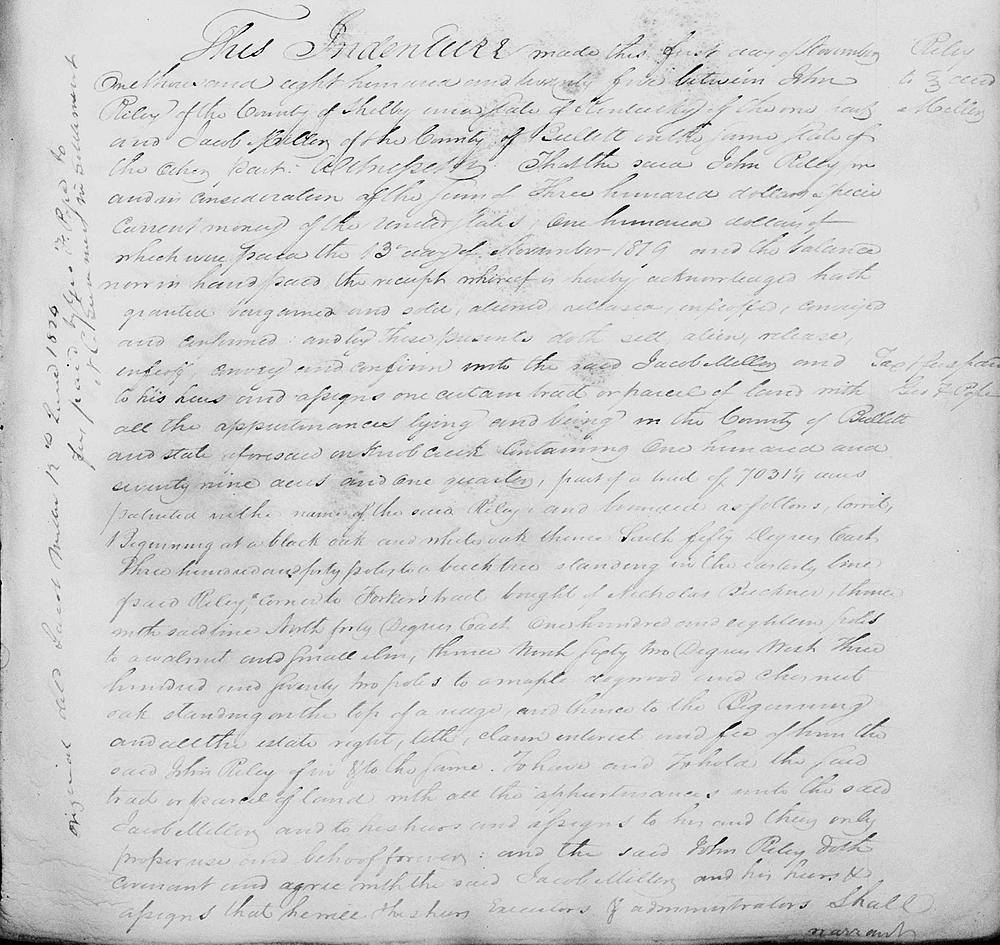 This Indenture made this first day of November
One thousand eight hundred and twenty five between John
Riley of the County of Shelby and state of Kentucky of the one part
and Jacob Miller of the County of Bullitt in the same state of
the other part: Witnesseth: That the said John Riley in
and in consideration of the sum of Three hundred dollars specie
current money of the United States, One hundred dollars of
which were paid the 13th day of November 1819 and the balance
now in hand paid the receipt whereof is hereby acknowledged hath
granted bargained and sold, aliened, released, enfeoffed, conveyed
and confirmed: and by these presents doth sell, alien, release,
enfeoff, convey and confirm unto the said Jacob Miller and
to his heirs and assigns one certain tract or parcel of land with
all the appurtenances lying and being in the County of Bullitt
and state aforesaid on Knob Creek Containing One hundred and
seventy nine acres and one quarter, part of a tract of 7031¼ acres
patented in the name of the said Riley and bounded as follows, towit,
Beginning at a black oak and white oak thence South fifty Degrees East
Three hundred and forty poles to a beech tree standing in the easterly line
of said Riley, corner to Forker's tract bought of Nicholas Buckner, thence
with said line North forty Degrees East One hundred and eighteen poles
to a walnut and small elm, thence North fifty two Degrees West Three
hundred and seventy two poles to a maple dogwood and chesnut
oak standing on the top of a ridge, and thence to the Beginning
and all the estate right, title, claim interest and fee of him the
said John Riley of in & to the same. To have and To hold the said
tract or parcel of land with all the appurtenances unto the said
Jacob Miller and to his heirs and assigns to his and their only
proper use and behoof forever: and the said John Riley doth
covenant and agree with the said Jacob Miller and his heirs &
assigns that he will & his heirs Executors & administrators Shall
warrant
Riley
to } deed
Miller
Tax & fees paid
Geo F Pope
original deld Jacob Miller 12th June 1826
fees paid by Geo F. Pope to